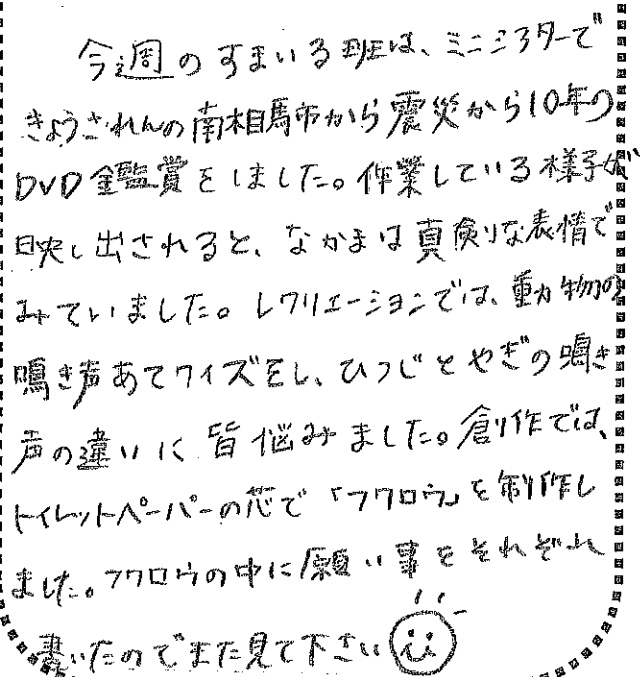 今週のすまいる班は、ミニシアターで
きょうされんの南相馬市から震災から10年の
DVD鑑賞をしました。作業している様子が
映し出されると、なかまは真剣な表情で
みていました。レクリエーションでは、動物の
鳴き声あてクイズをし、ひつじとやぎの鳴き
声の違いに皆悩みました。創作では、
トイレットペーパーの芯で「フクロウ」を制作し
ました。フクロウの中に願い事をそれぞれ
書いたのでまた見て下さい